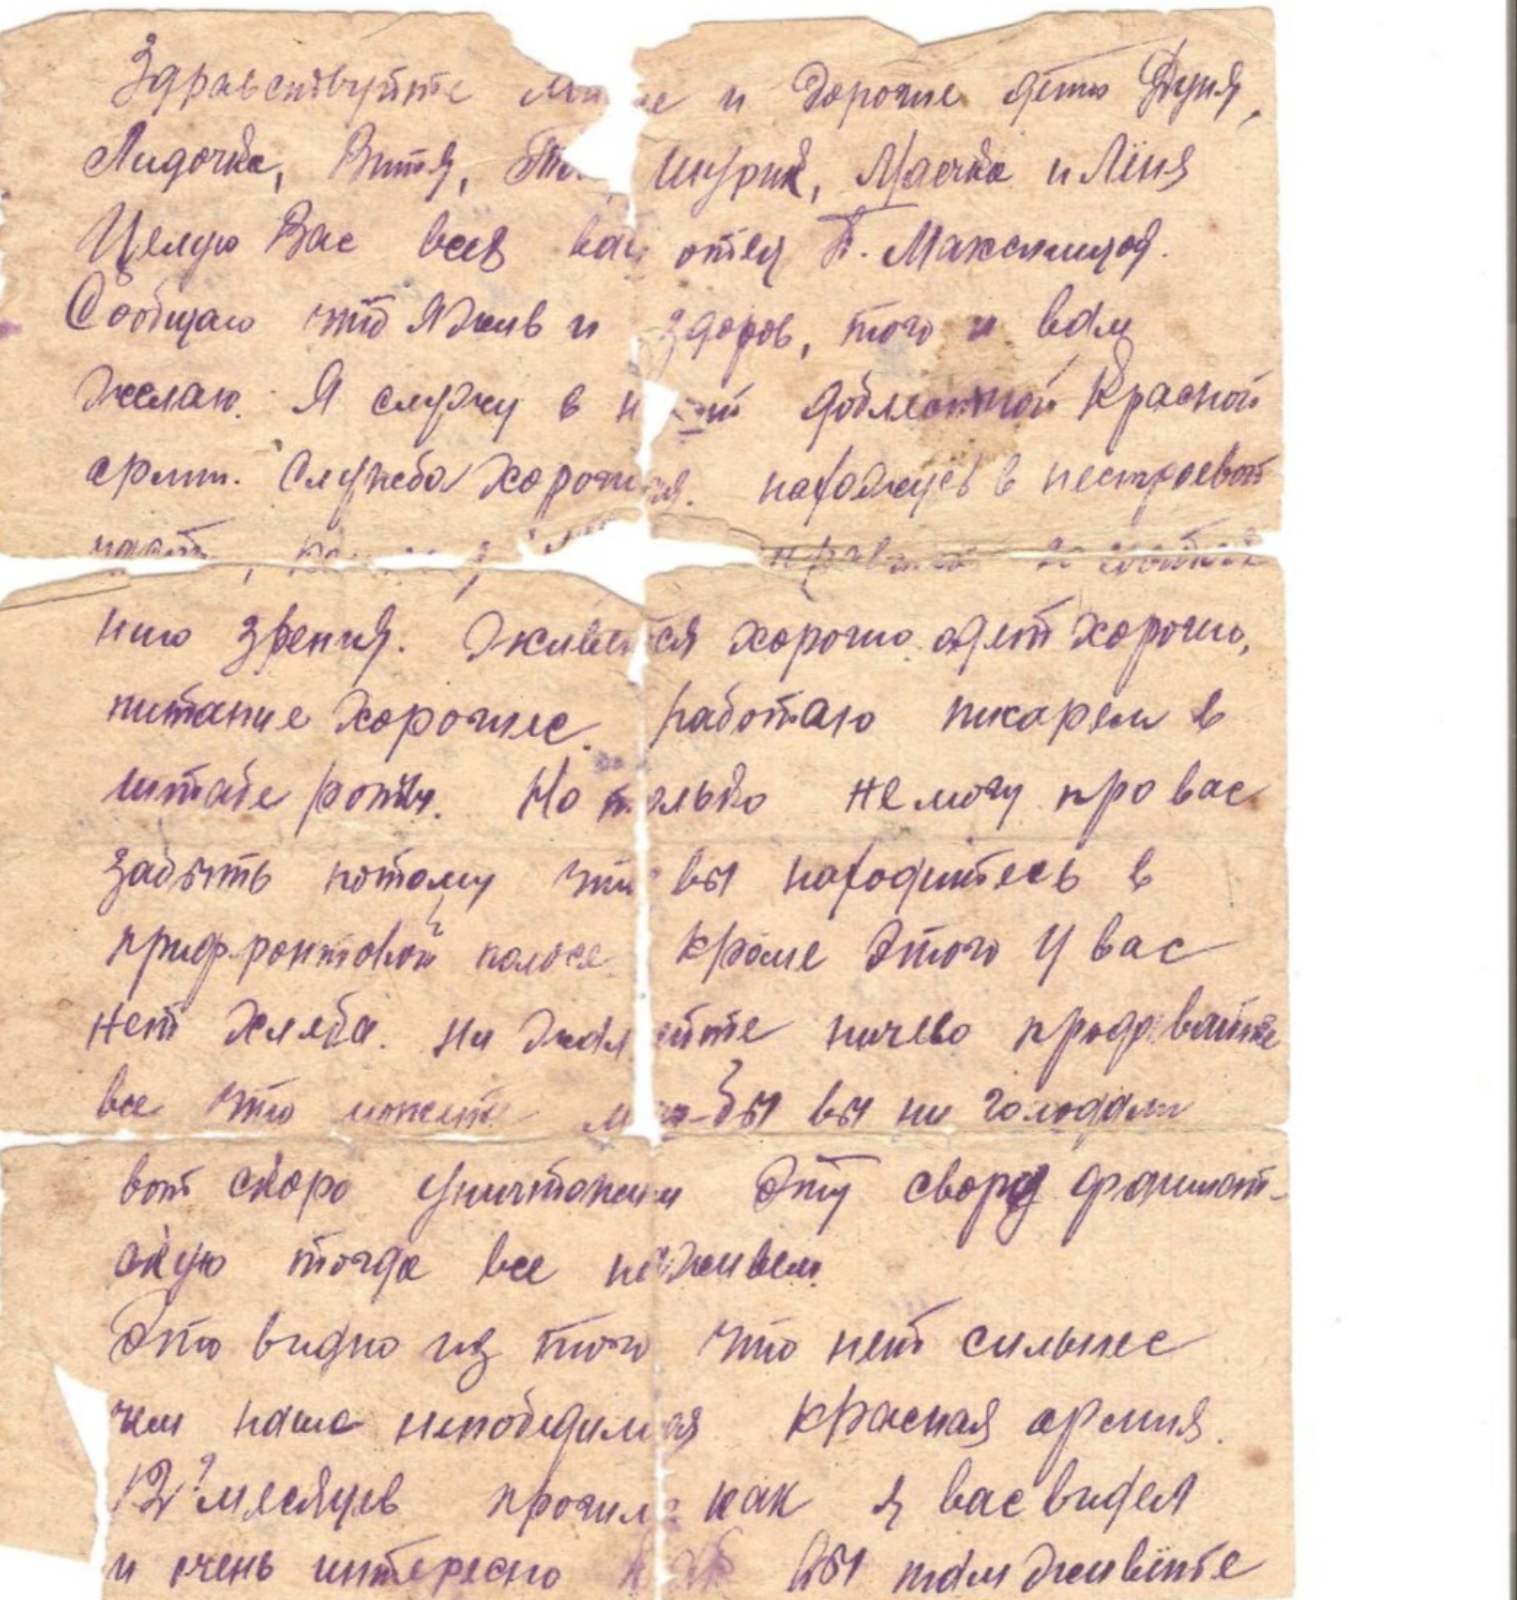 Здравствуйте милые и дорогие дети Дуня,
Лидочка, Витя, Шурик, Маечка и Лёня
Целую Вас всех ваш отец Т. Максимцов.
Сообщаю что я жив и здоров, того и вам
желаю. Я служу в нашей доблестной Красной
армии. Служба хорошая. нахожусь в нестроевой
части,
нию зрения. Живется хорошо. одет хорошо,
питание хорошее. работаю писарем в
штабе роты. Но только не могу про вас
забыть потому что вы находитесь в
прифронтовой полосе кроме этого у вас
нет хлеба. ни жалейте ничево продовайте
все что можете бы вы ни голодали
вот скоро уничтожим эту свору фашист-
скую тогда все поживем.
Это видно из того что нет сильнее
чем наша непобедимая красная армия.
12 месяцев прошло как я вас видел
и очень интересно как вы там живёте